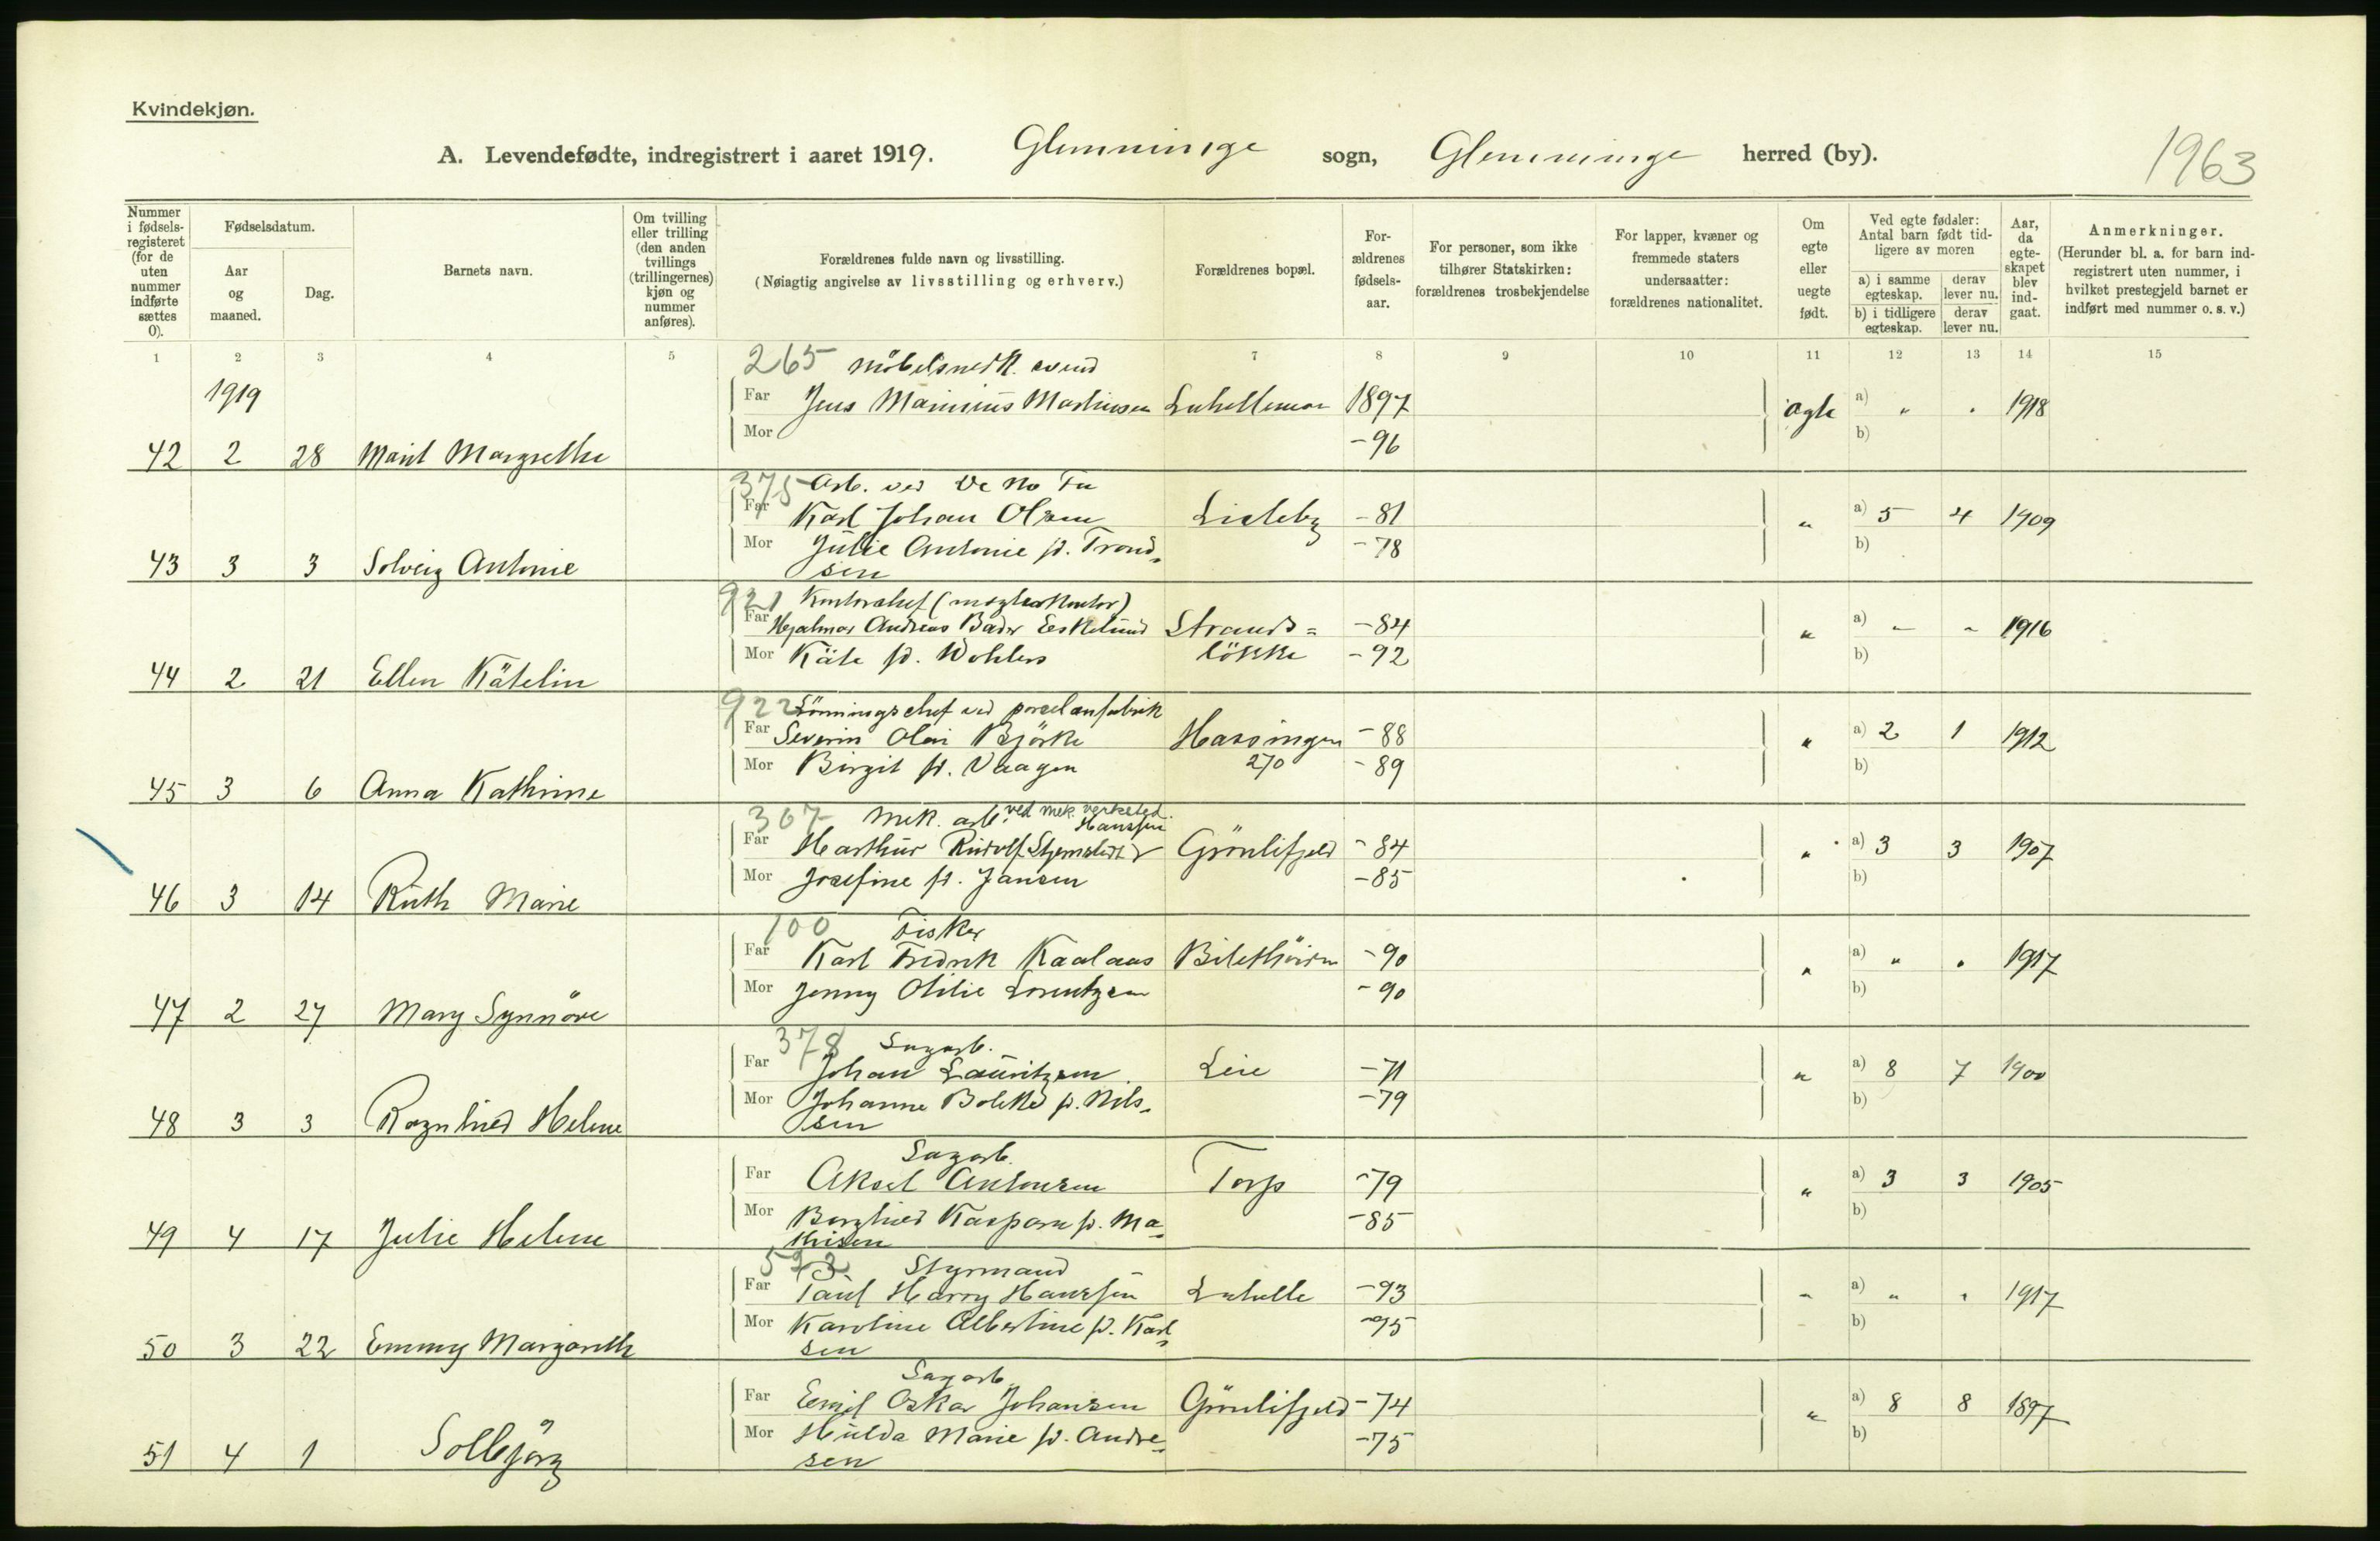 Kvindekjøn.
A. Levendefødte, indregistrert i aaret 1919. Glemminge sogn, Glemminge herred (by). 1963
Nummer i fødselsregisteret (for de uten nummer indførte sættes 0).
Fødselsdatum.
Aar og maaned.
Dag.
Barnets navn.
Om tvilling eller trilling (den anden tvillings (trillingernes) kjøn og nummer anføres).
Forældrenes fulde navn og livsstilling.
(Nøiagtig angivelse av livsstilling og erhverv.)
Forældrenes bopæl.
Forældrenes fødselsaar.
For personer, som ikke tilhører Statskirken: forældrenes trosbekjendelse
For lapper, kvæner og fremmede staters undersaatter: forældrenes nationalitet.
Om egte eller uegte født.
Ved egte fødsler: Antal barn født tidligere av moren
a) i samme egteskap. derav lever nu.
b) i tidligere egteskap. derav lever nu.
Aar, da egteskapet blev indgaat.
Anmerkninger.
(Herunder bl. a. for barn indregistrert uten nummer, i hvilket prestegjeld barnet er indført med nummer o. s. v.)
1 2 3 4 5 7 8 9 10 11 12 13 14 15
265 Möbelsnedk. svend
1919
Far Jens Marinius Martinsen 1897 ægte a) " " 1918
Mor -96 b)
42 2 28 Marit Margrethe
375 Arb. ved De No Fa
Far Karl Johan Olsen Lisleby -81 " a) 5 4 1909
Mor Julie Antonie f. Trond- -78 b)
43 3 3 Solveig Antonie sen
921 Kontorchef (mæglerkontor)
Far Hjalmar Andreas Bader Eskelund Strands= -84 " a) " " 1916
Mor Käte f. Wohlers lökke -92 b)
44 2 21 Ellen Kätelin
922 Lönningschef ved porselansfabrik
Far Severin Olai Björke Hassingen -88 " a) 2 1 1912
Mor Birgit f. Vaagen 270 -89 b)
45 3 6 Anna Kathrine
367 Mek. arb. ved mek. verksted.
Hanssen
Far Harthur Rudolf Grönlifjeld -84 " a) 3 3 1907
Mor Josefine f. Jansen -85 b)
46 3 14 Ruth Marie
100 Fisker
Far Karl Fredrik Kaalaas -90 " a) " " 1917
Mor Jenny Otilie Lorentzen -90 b)
47 2 27 Mary Synnöve
378 Sagarb.
Far Johan Lauritzen Leie -71 " a) 8 7 1900
Mor Johanne f. Nils- -79 b)
48 3 3 Ragnhild Helene sen
Sagarb.
Far Aksel Antonsen Torp -79 " a) 3 3 1905
Mor Borghild Kaspara f. Ma- -85 b)
49 4 17 Julie Helene thisen
Styrmand
Far Paul Harry Hanssen -93 " a) " " 1917
Mor Karoline Albertine f. Karl- -95 b)
50 3 22 Emmy Margareth sen
Sagarb.
Far Emil Oskar Johansen Grönlifjeld -74 " a) 8 8 1897
Mor Hulda Marie f. Andre- -75 b)
51 4 1 Solbjörg sen